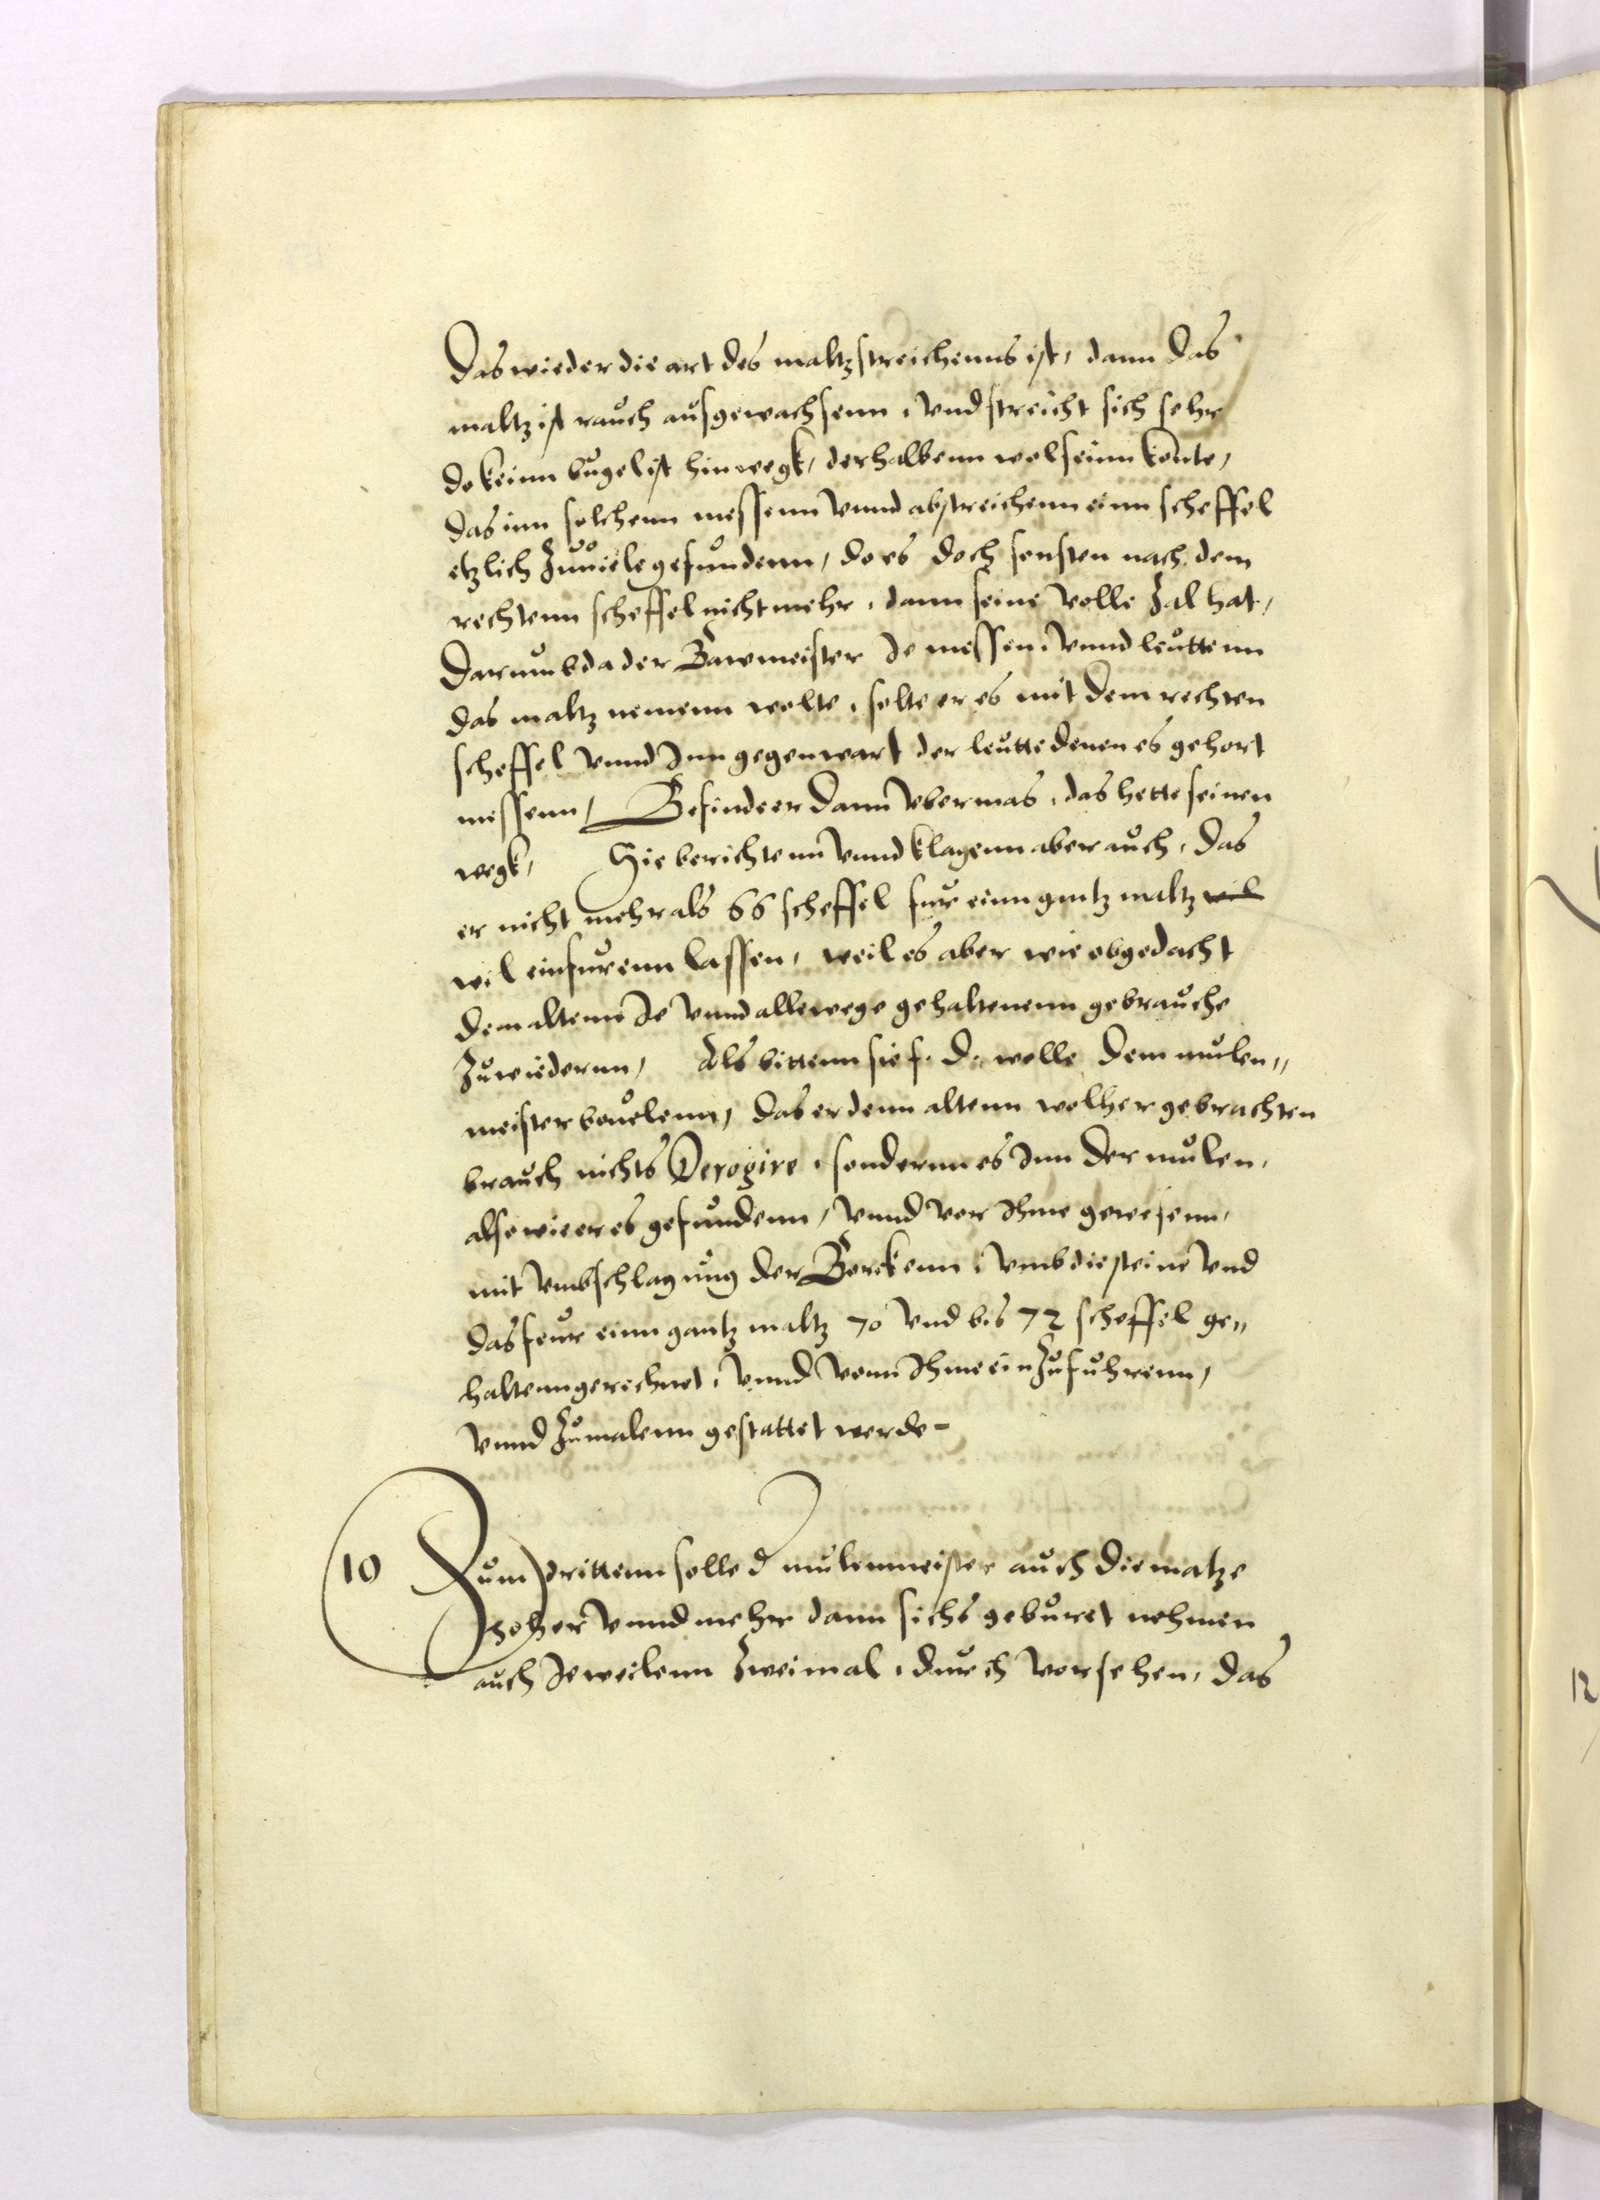 Das wieder die art des maltzstreichenns ist, dann das
maltz ist rauch ausgewachsenn, Vnd streicht sich sehr
do keinn bugel ist hinwegk, derhalbenn wol seinn konte,
das inn solchenn messenn Vnnd abstreichenn einn scheffel
etzlich Zuuiele gefundenn, do es doch sonsten nach dem
rechtenn scheffel nicht mehr, dann seine Volle Zal hat,
Darumb da der Bawmeister Je messen, Vnnd leuttenn
das maltz nemenn wolte, solte er es mit dem rechten
scheffel Vnnd Inn gegenwart der leutte denen es gehort
messenn, Befinde er dann Vbermas, das hette seinen
wegk, Sie berichtenn Vnnd klagenn aber auch, das
er nicht mehr als 66 scheffel fur einn gantz maltz wil
wil einfurenn lassen, weil es aber wie obgedacht
dem altenn Je Vnnd allewege gehaltenenn gebrauche
Zuwiedernn, Als bittenn sie f. d. wolle dem mulen„
meister beuelenn, das er denn altenn wolhergebrachten
brauch nichts Derogire, sondernn es Inn der mulen,
also wie er es gefundenn, Vnnd vor Ihme gewesenn,
mit Vmbschlagung der Borckenn, Vmb die steine Vnd
das feur einn gantz maltz 70 Vnd bis 72 scheffel ge„
haltenn gerechnet, Vnnd Vonn Ihme ein Zufuhrenn,
Vnnd Zumalenn gestattet werde-
10 Zum Drittenn solle d mulenmeister auch die matze
hoher Vnnd mehr dann sichs geburet nehmen
auch Jeweilenn Zweimal, durch Vorsehen, das
12